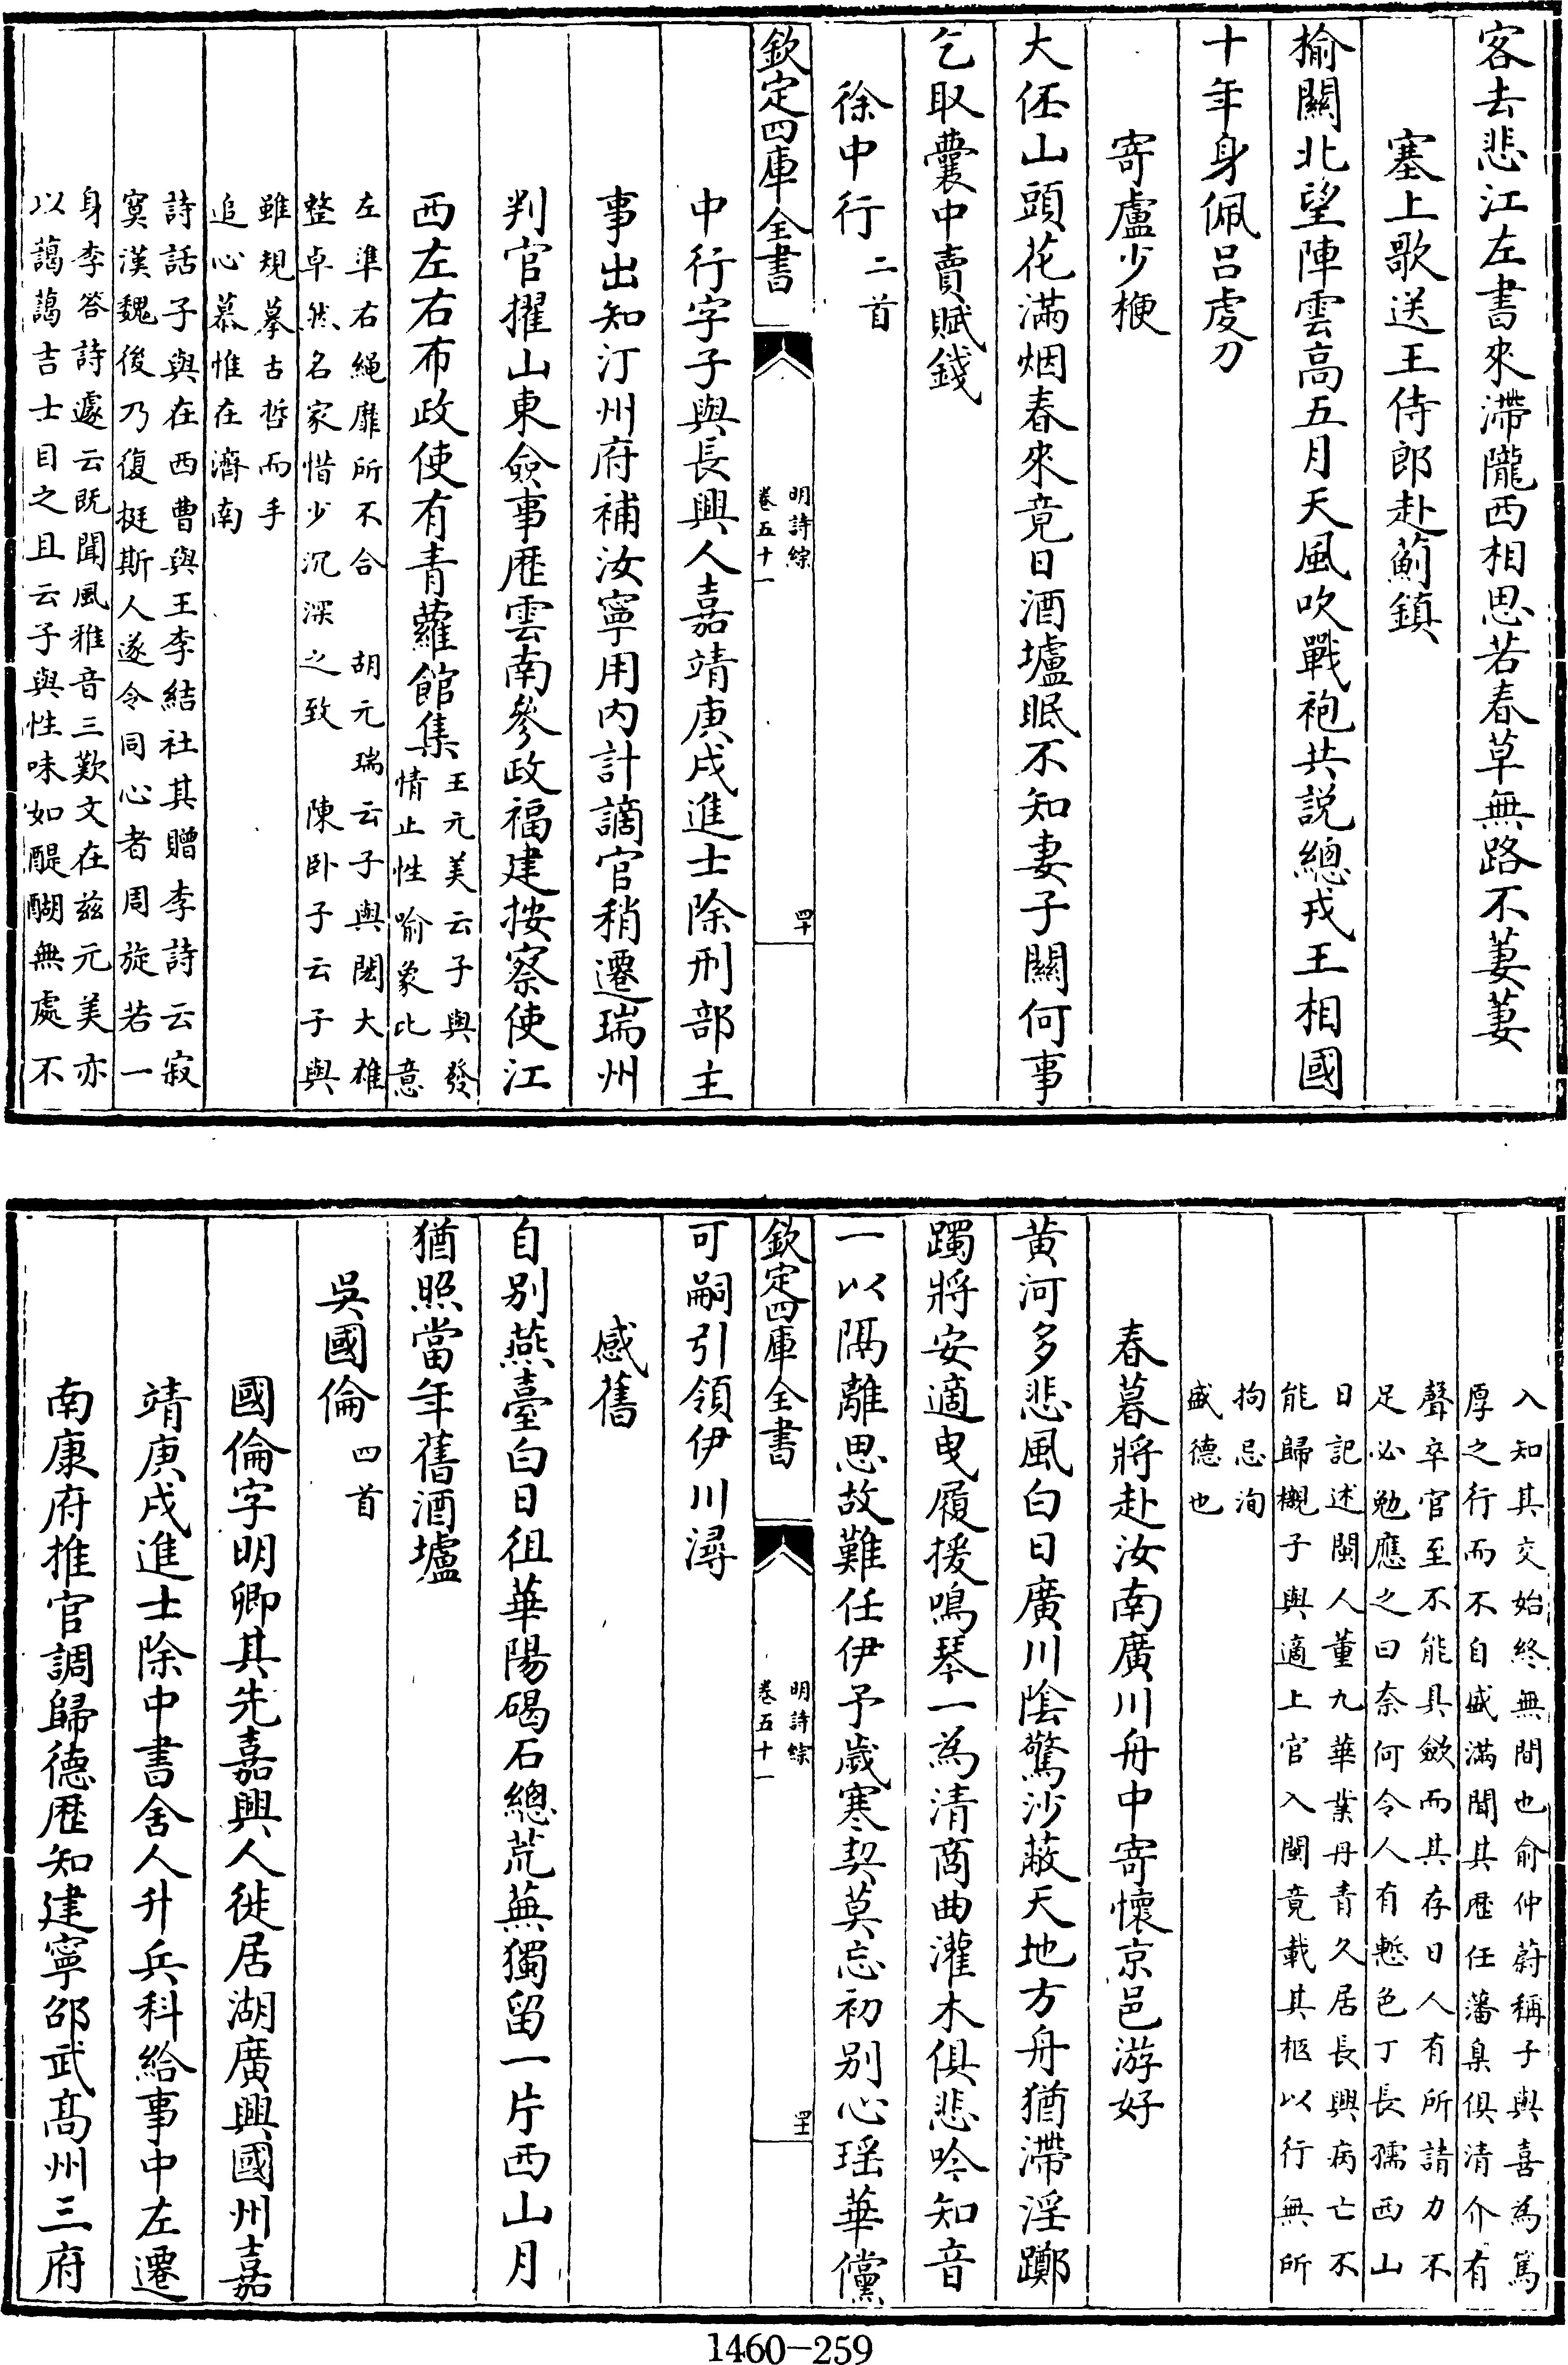 客去悲江左書來滯隴西相思若春草無路不萋萋
塞上歌送王侍郎赴薊鎮
榆關北望陣雲高五月天風吹戰袍共説總戎王相國
十年身佩呂虔刀
寄盧少楩
大伾山頭花滿烟春來竟日酒壚眠不知妻子關何事
乞取囊中賣賦錢
徐中行二首
欽定四庫全書
明詩綜
卷五十一
四十
中行字子與長興人嘉靖庚戌進士除刑部主
事出知汀州府補汝寧用内計謫官稍遷瑞州
判官擢山東僉事歷雲南參政福建按察使江
西左右布政使有青蘿館集
王元美云子與發
情止性喻象比意
左準右繩靡所不合 胡元瑞云子與閎大雄
整卓然名家惜少沉深之致 陳卧子云子與
雖規摹古哲而手
追心慕惟在濟南
詩話子與在西曹與王李結社其贈李詩云寂
寞漢魏後乃復挺斯人遂令同心者周旋若一
身李答詩遽云既聞風雅音三歎文在兹元美亦
以藹藹吉士目之且云子與性味如醍醐無處不
入知其交始終無間也俞仲蔚稱子與喜為篤
厚之行而不自盛滿聞其歷任藩臬俱清介有
聲卒官至不能具斂而其存日人有所請力不
足必勉應之曰奈何令人有慙色丁長孺西山
日記述閩人董九華業丹青久居長興病亡不
能歸櫬子與適上官入閩竟載其柩以行無所
拘忌洵
盛德也
春暮將赴汝南廣川舟中寄懷京邑游好
黄河多悲風白日廣川陰驚沙蔽天地方舟猶滯淫躑
躅將安適曳履援鳴琴一為清商曲灌木俱悲吟知音
一以隔離思故難任伊予歲寒契莫忘初别心瑤華儻
欽定四庫全書
明詩綜
卷五十一
四十一
可嗣引領伊川潯
感舊
自别燕臺白日徂華陽碣石總荒蕪獨留一片西山月
猶照當年舊酒壚
吳國倫四首
國倫字明卿其先嘉興人徙居湖廣興國州嘉
靖庚戌進士除中書舍人升兵科給事中左遷
南康府推官調歸德歷知建寧邵武高州三府
1460-259